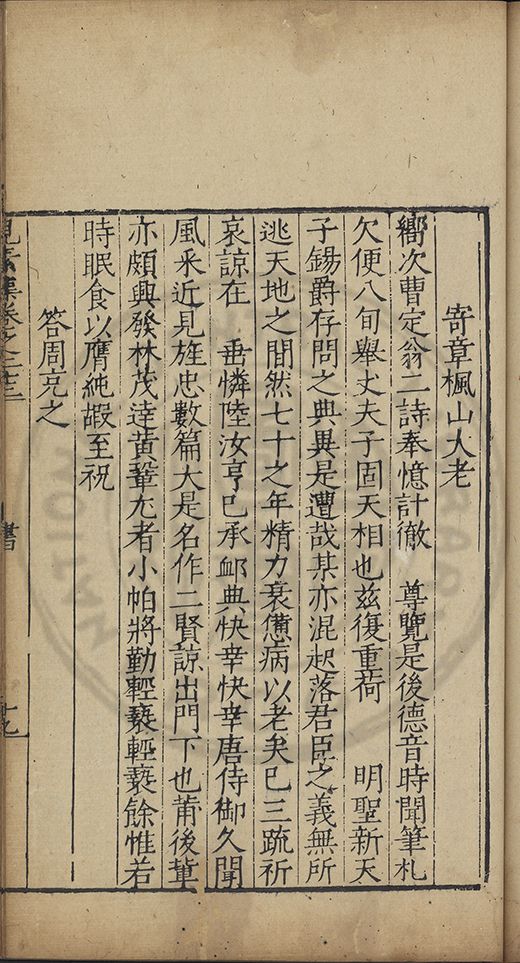 寄章楓山大老
嚮次曹定翁二詩奉憶計徹　尊覽是後德音時聞筆札
欠便八旬舉丈夫子固天相也茲復重荷　明聖新天
子錫爵存問之典異是遭哉某亦混起落君臣之義無所
逃天地之間然七十之年精力衰憊病以老矣已三疏祈
哀諒在　垂憐陸汝亨已承卹典快幸快幸唐侍御久聞
風采近見旌忠數篇大是名作二賢諒出門下也莆後輩
亦頗興發林茂達黃鞏尤者小帕將勤輕褻輕褻餘惟若
時眠食以膺純嘏至祝
答周克之
見素集卷之二十三
書
十九